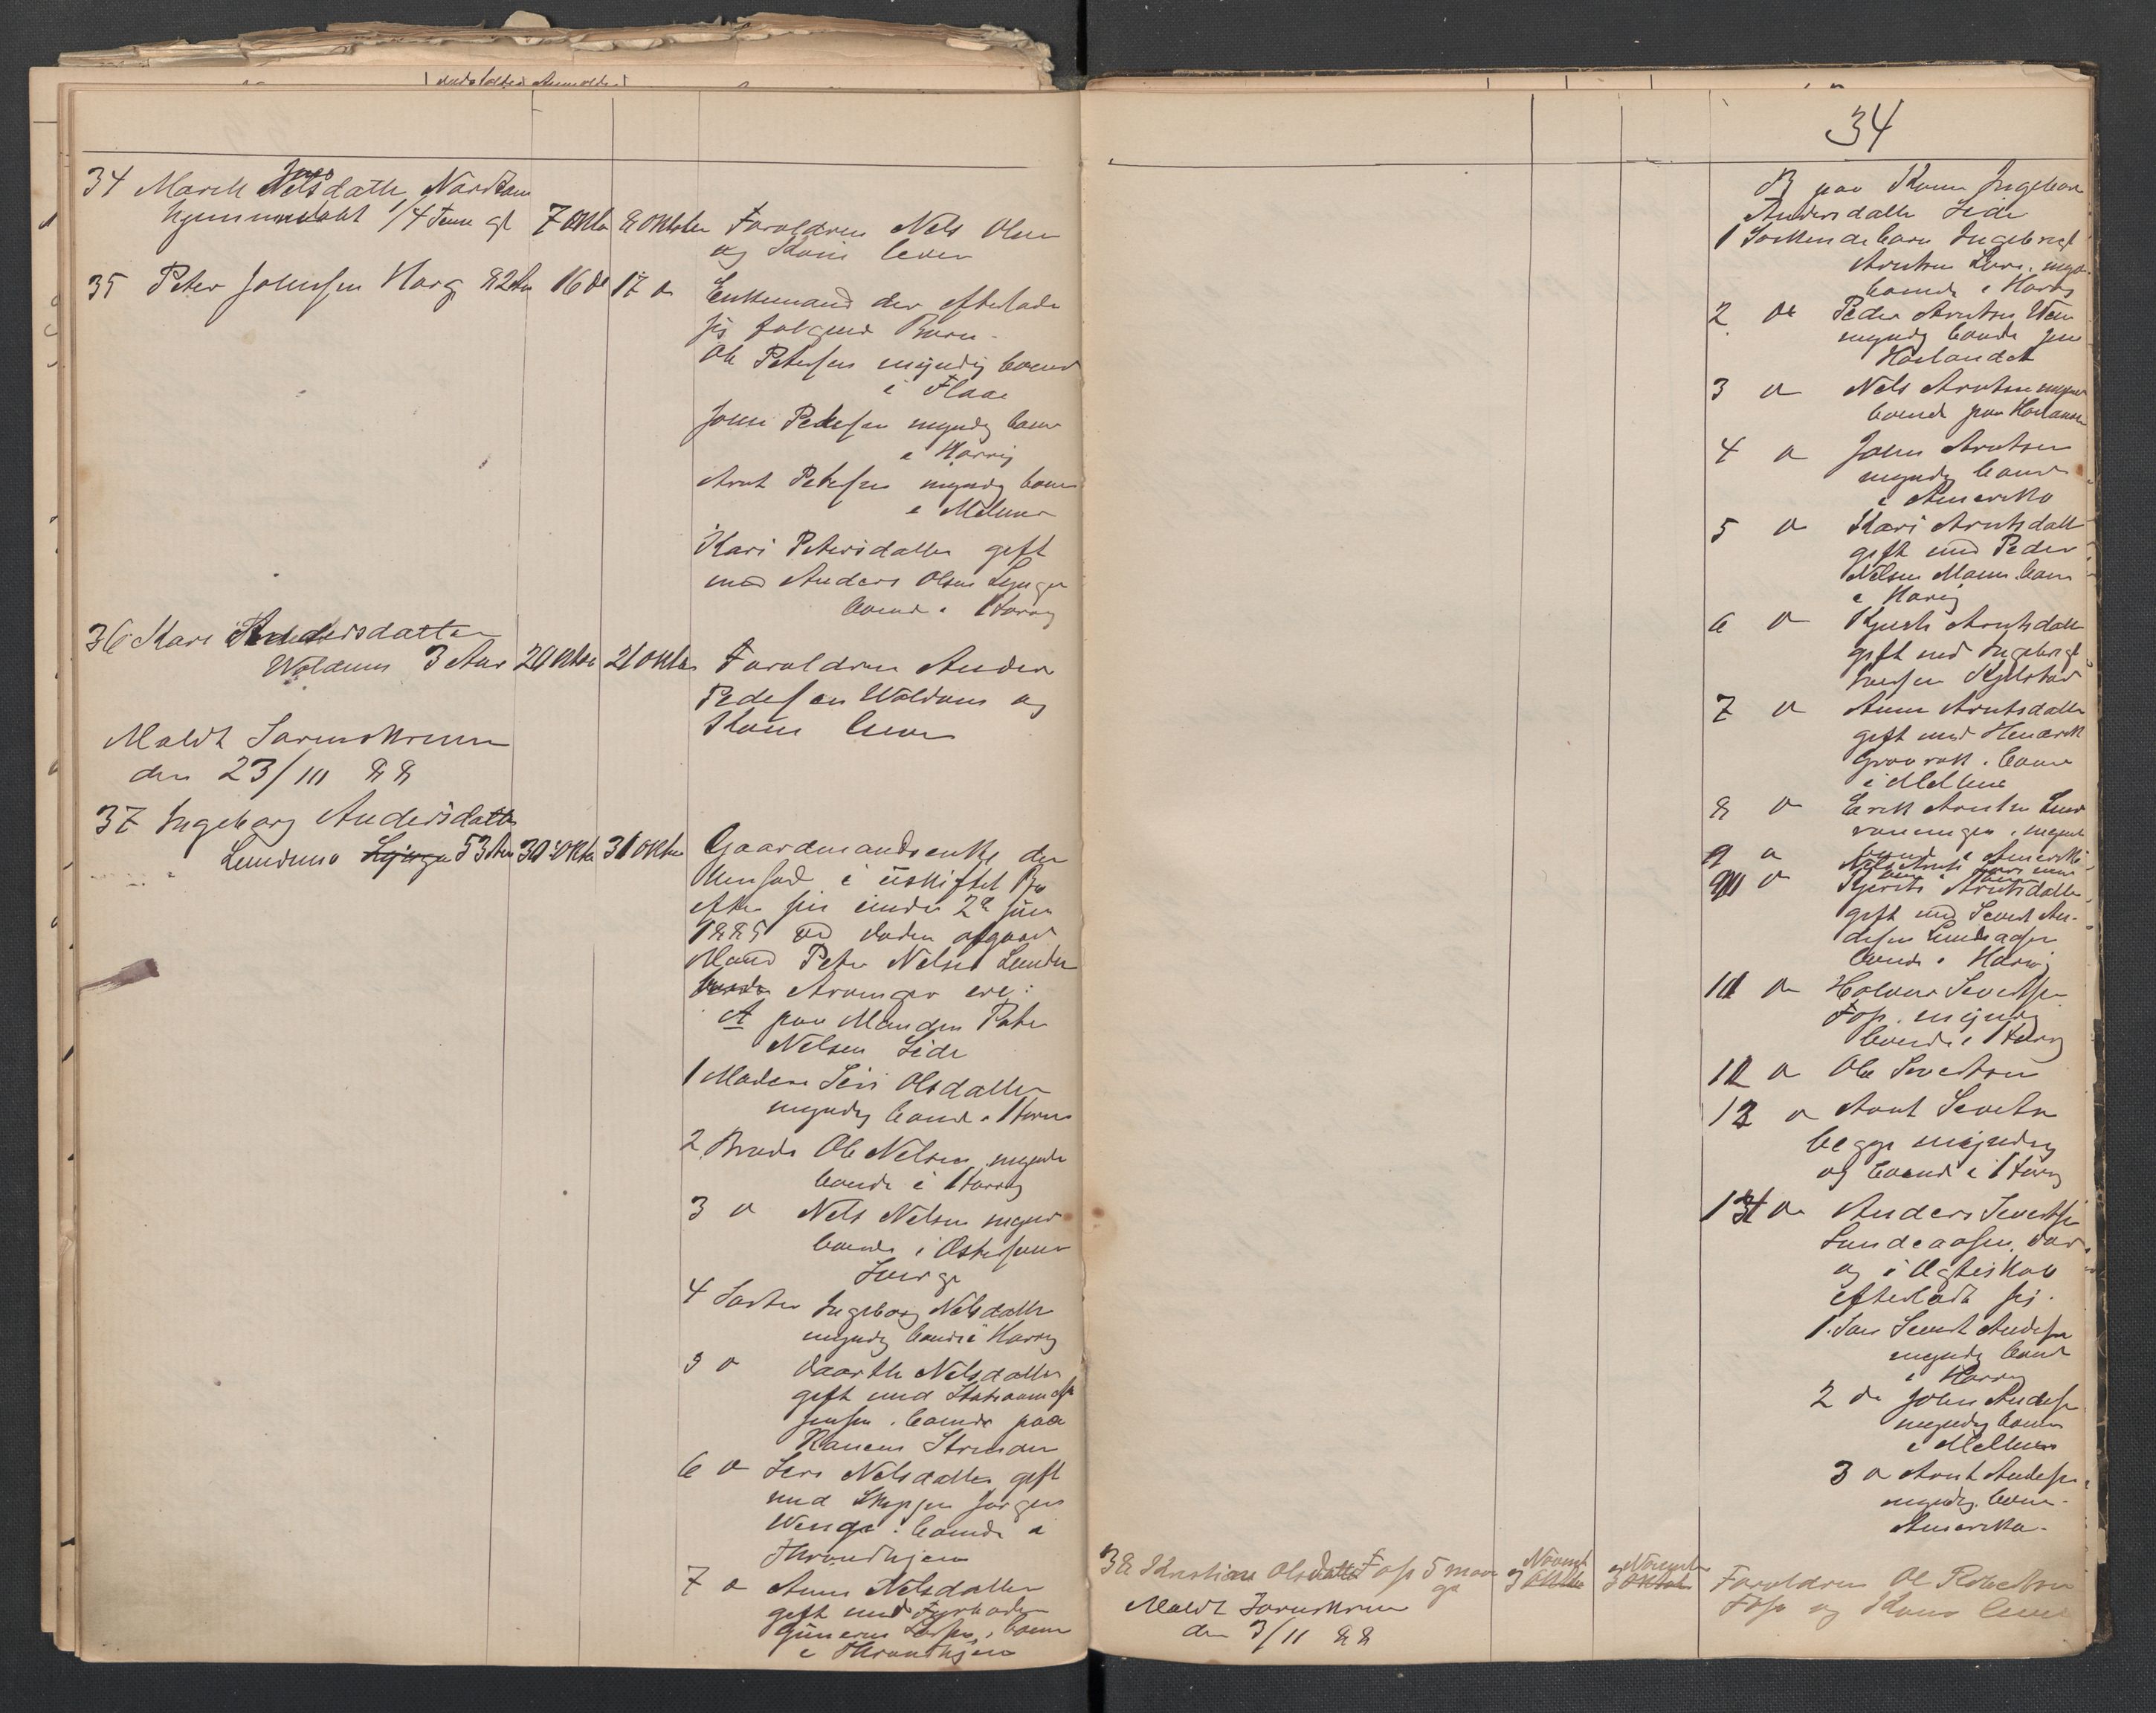 34
34 Marit Jens Nelsdatter Nordtøm
hjemmedøbt 1/4 Time gl 7 Okto 8 Oktober Foraldren Nels Olsen
og Kone lever
35 Peter Johnsen Horg 82 Aar 16 do 17 do Enkemand der efterlader
sig følgende Børn.
Ole Petersen myndig boende
i Flaa
John Petersen myndig boende
i Horrig
Arnt Petersen myndig boende
i Melhus
Kari Petersdatter gift
med Anders Olsen Lynge
boende i Horrig
36 Kari Andersdatter
Woldum 3 Aar 20 Okto 21 Oktbr Foraldren Anders
Pedersen Woldum og
Kone lever
Meldt Sorenskrever
den 23/11 88
37 Ingeborg Andersdatter
Lundemo Lynge 53 Aar 30 Okto 31 Oktbr Gaardmandsenke der
hensad i uskiftet Bo
efter sin under 28 Juni
1885 ved Døden afgaaet
Mand Peter Nelsen Lunde
Arvinger ere:
A paa Manden Peter
Nelsen Side
1 Moderen Siri Olsdatter
myndig boende i Horrig
2 Broder Ole Nelsen myndig
boende i Horrig
3 do Nels Nelsen myndig
boende i Østersund
Sverge
4 Søster Ingeborg Nelsdatter
myndig boende i Horrig
5 do Maarthe Nelsdatter
gift med Stationsmester
Jensen boende paa
Ranem Strinden
6 do Siri Nelsdatter gift
med Skipper Jørgen
Wenge boende i
Throndhjem
7 do Anne Nelsdatter
gift med Fyrbøder
Gunerius Larsen, boende
i Throndhjem
B paa Konen Ingeborg
Andersdatter Side
1 Søskendebarn Ingebrigt
Arntsen Lere, myndig
boende i Horrig
2 do Peder Arntsen Wem
myndig boende paa
Hølandet
3 do Nels Arntsen myndig
boende paa Hølandet
4 do John Arntsen
myndig boende
i Amerika
5 do Kari Arntsdatter
gift med Peder
Nelsen Moum boende
i Horrig
6 do Kjersti Arntsdatter
gift med Ingebrigt
Iversen Kjelstad
7 do Anne Arntsdatter
gift med Henderik
Gravrok boende
i Melhus
8 do Erik Arntsen Lund
myndig
boende i Amerika
9 do Nels Arnts
10 do Kjersti Arntsdatter
gift med Sivert An-
dersen Lundeaasen
boende i Horrig
11 do Halvor Sivertsen
Fos, myndig
boende i Horrig
12 do Ole Sivertsen
13 do Arnt Sivertsen
begge myndig
og boende i Horrig
14 do Anders Sivertsen
Lundeaasen, død
og i Ægteskab
efterladt sig.
1. Søn Sivert Andersen
myndig boende
i Horrig
2 do John Andersen
myndig boende
i Melhus
3 do Arnt Andersen
myndig boende
Amerika.
38 Kristiane Olsdatter Fos 5 maaneder gl Novemb 3 Oktbr November 3 Oktob Foraldren Ol Robertsen
Fos og Kone lever
Meldt Sorenskrever
den 3/11 88